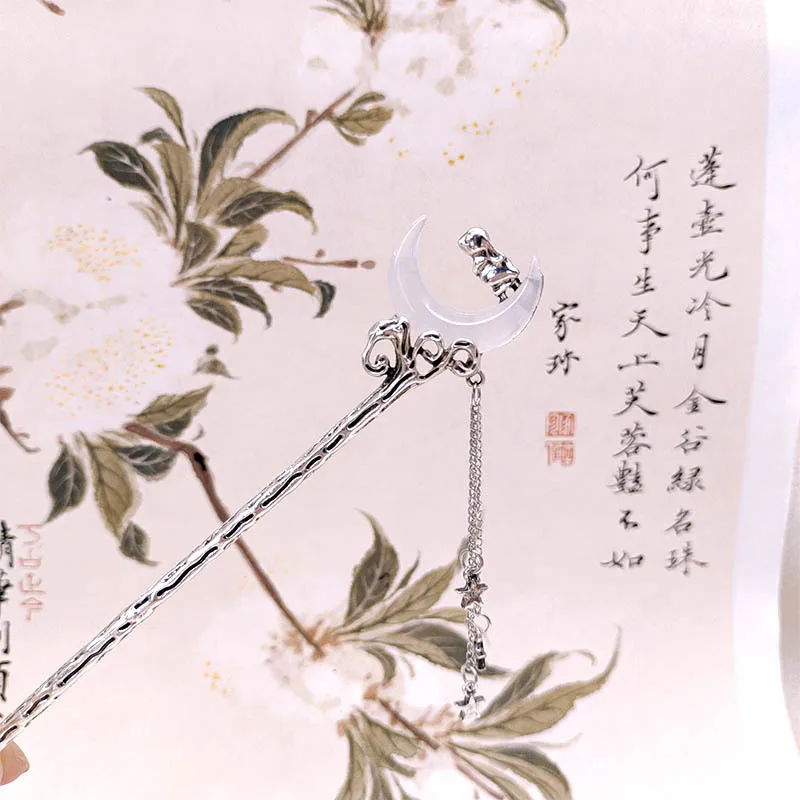 蓬壺光冷月金谷緑名珠
何事生天上芙蓉豔不如
家珎